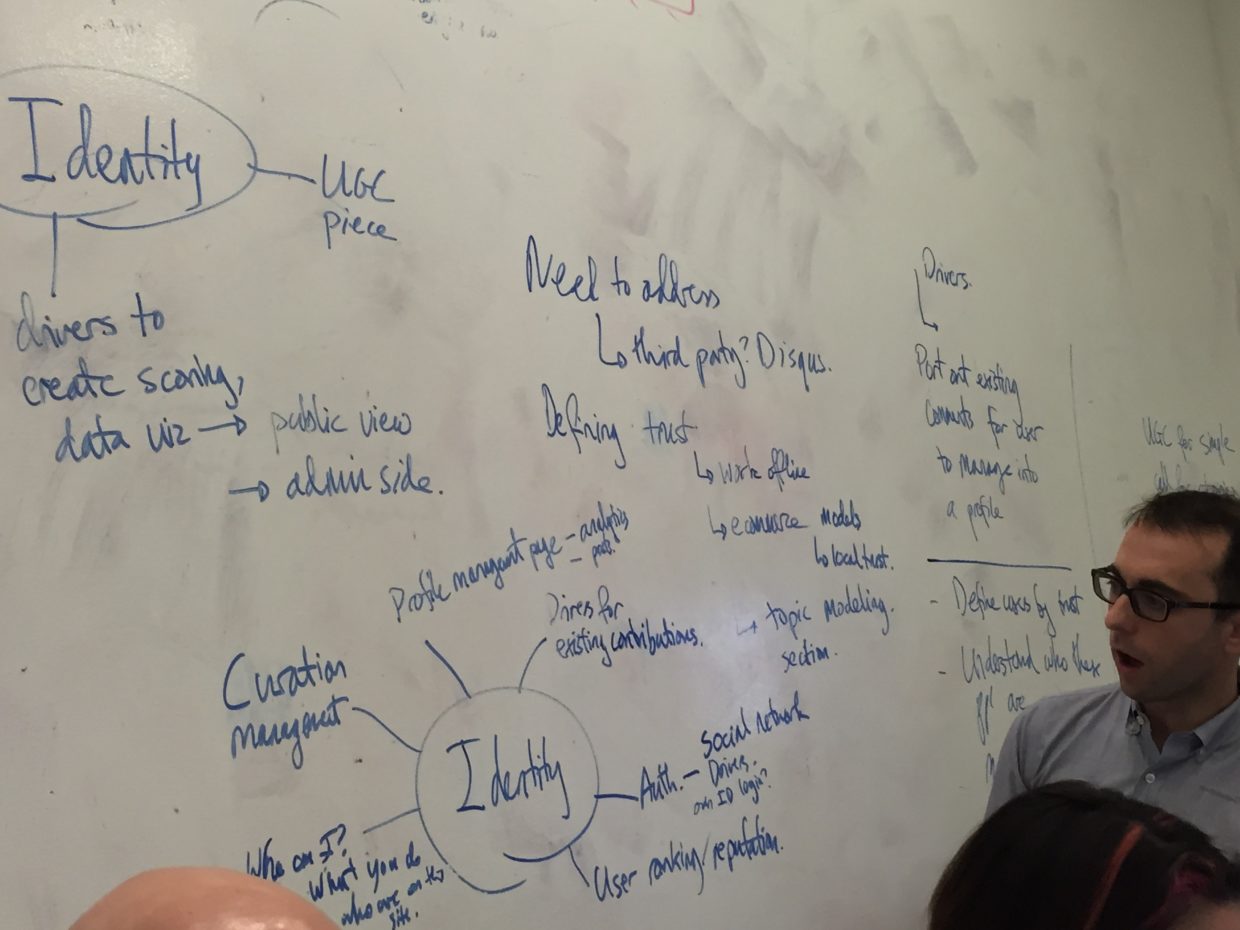 Identity
UGC
piece
drivers to
create scoring,
data viz → public view
→ admin side.
Need to address
↳ third party? Disqus.
Defining trust
↳ work offline
↳ ecommerce models
↳ local trust.
↳ topic modeling.
section.
Drivers.
↳
Port out existing
comments for user
to manage into
a profile
- Define users by trust
- Understand who these
ppl are
UGC for simple
Profile management page - analytics
- posts?
Drivers for
existing contributions.
Curation
management
Identity
Auth. - Social network
Drivers.
own ID login?
User ranking/reputation.
Who am I?
What you do
who are on the
site.